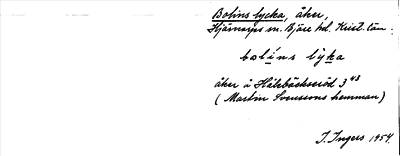 Bolins lycka, åker,
Hjärnarps sn. Bjäre hd. Krist. län:
bolins lỳka
åker å Hålebäckseröd 3⁴³
(Martin Svenssons hemman)
I. Ingers 1954.